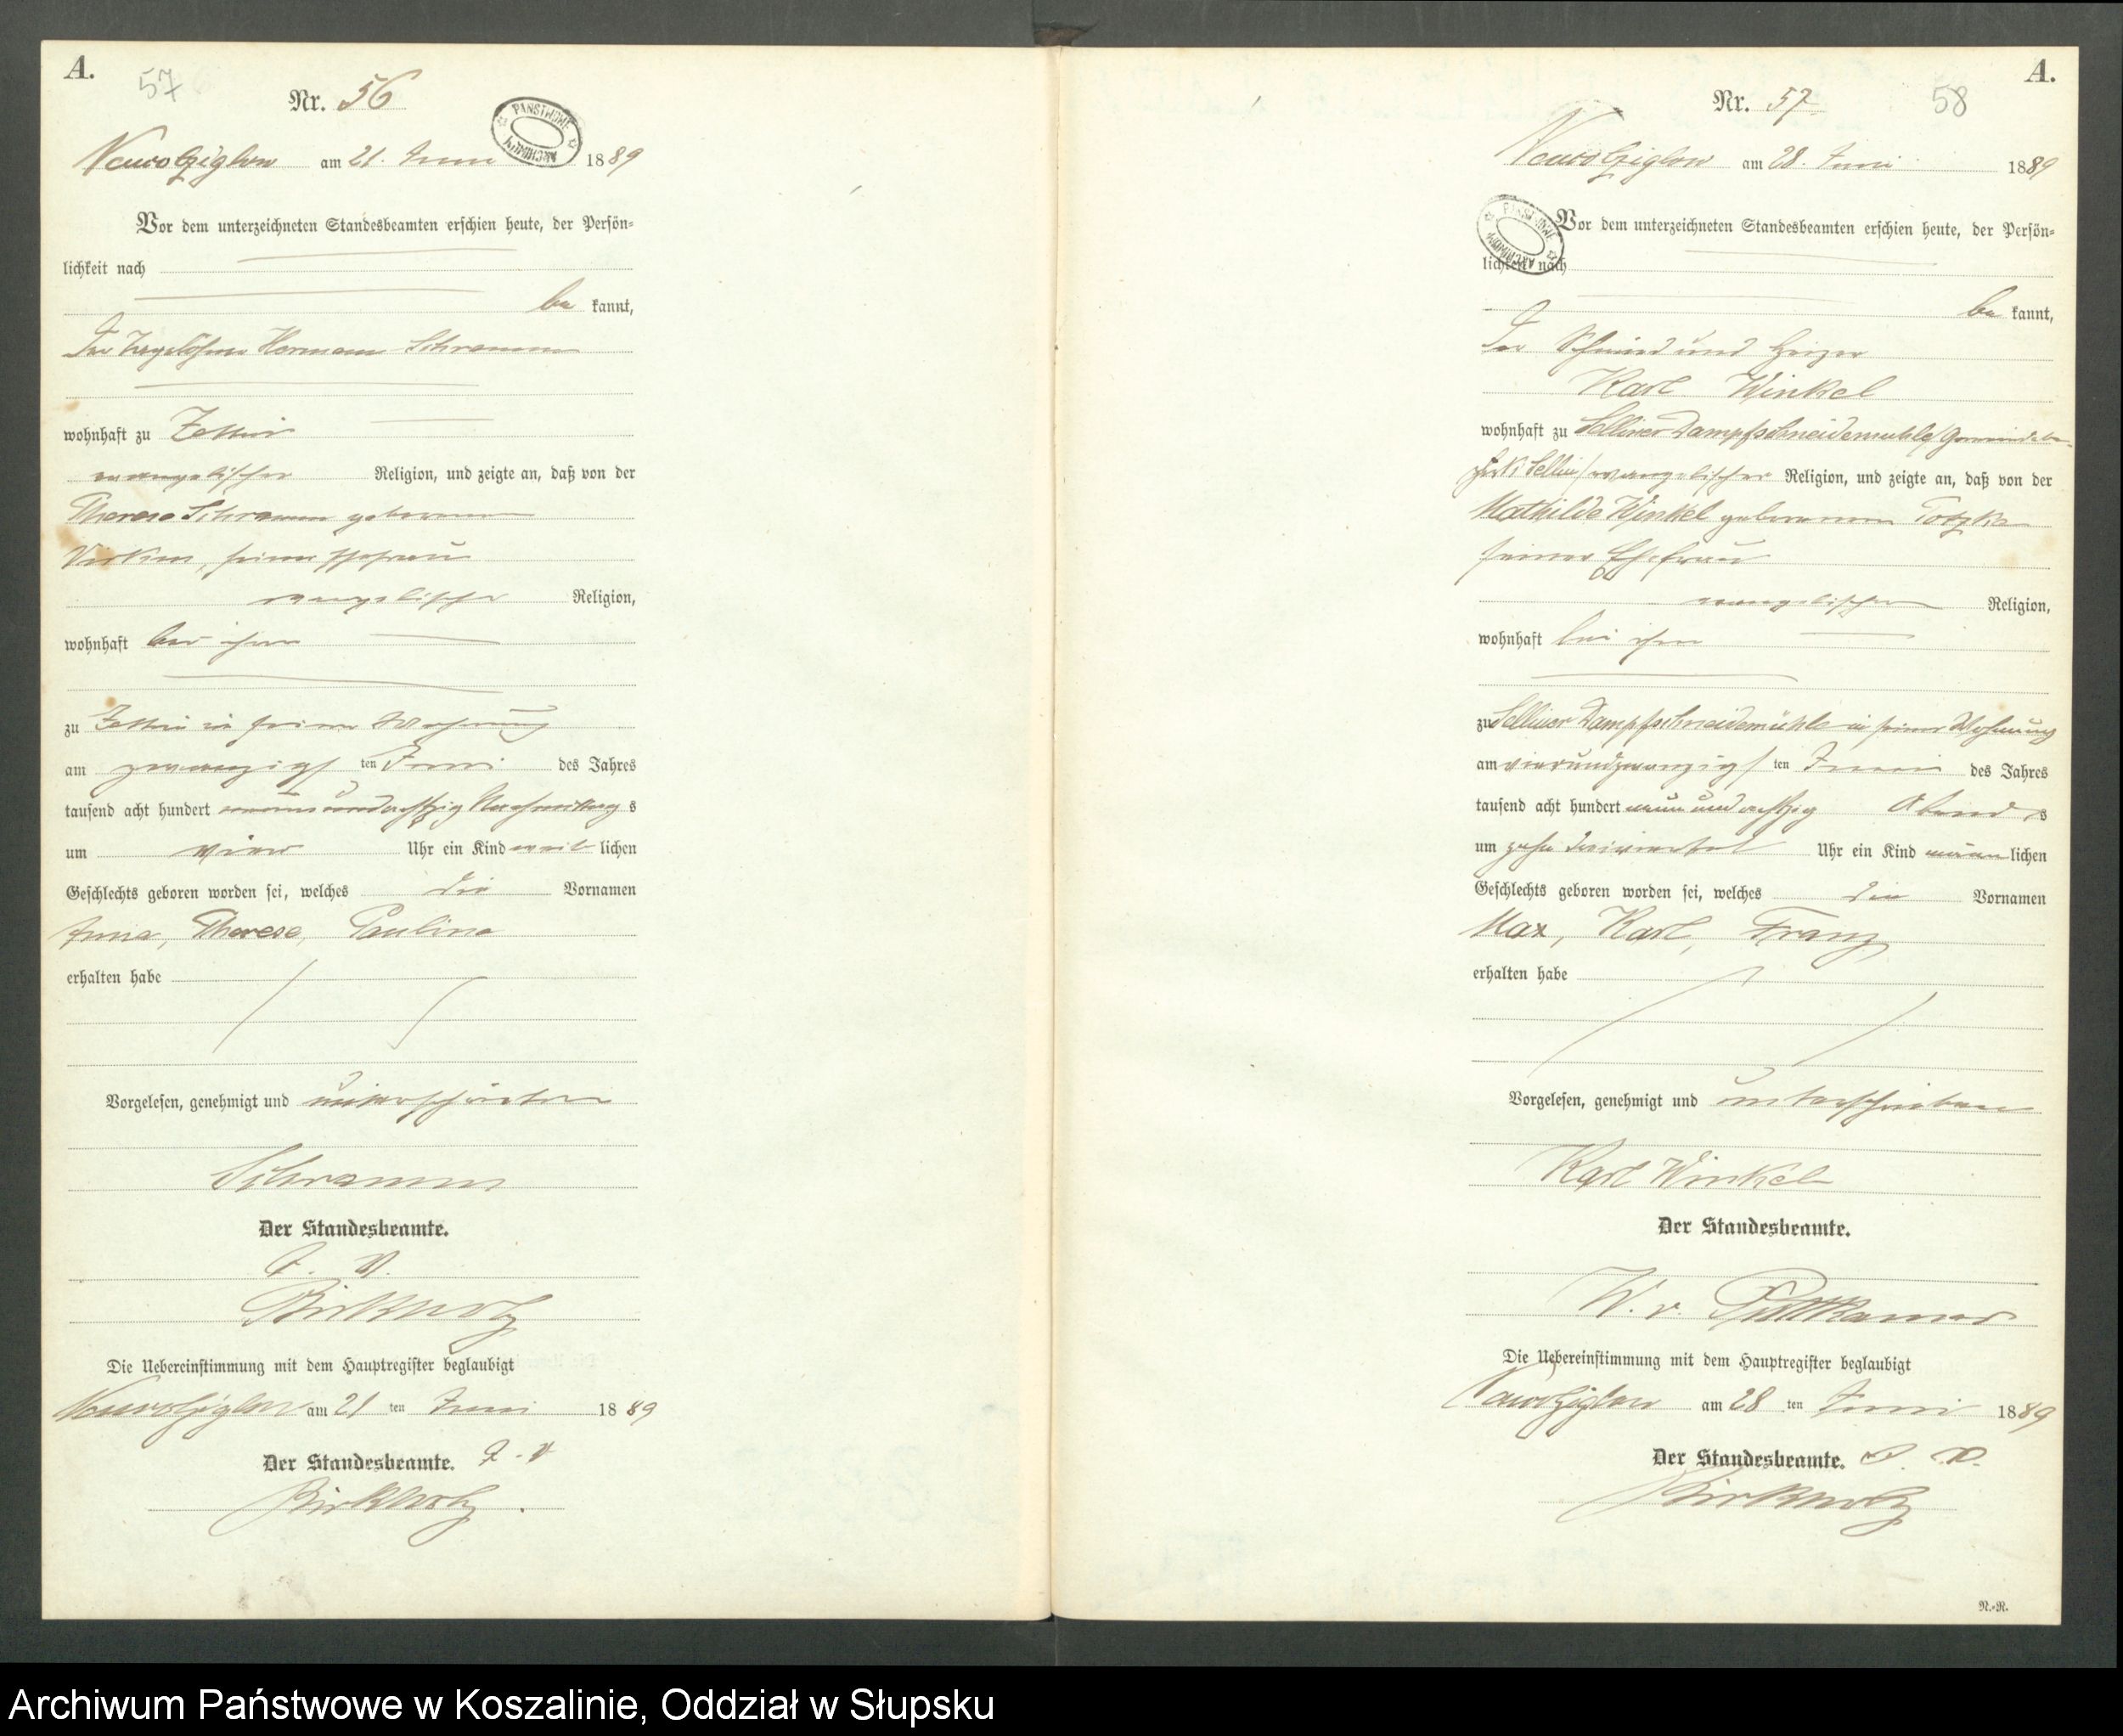 A.
57
Nr. 56
PAŃSTWOWE ARCHIWUM
Neuwolziglow am 21. Juni 1889
Vor dem unterzeichneten Standesbeamten erschien heute, der Persön-
lichkeit nach
be kannt,
Der Tagelöhner Hermann Schramm
wohnhaft zu Zettin
evangelischer Religion, und zeigte an, daß von der
Therese Schramm geborenen
seiner Ehefrau
evangelischer Religion,
wohnhaft bei ihm
zu Zettin in seiner Wohnung
am zwanzigs ten Juni des Jahres
tausend acht hundert neunundachtzig Nachmittag s
um vier Uhr ein Kind weib lichen
Geschlechts geboren worden sei, welches die Vornamen
Anna, Therese, Pauline
erhalten habe
Vorgelesen, genehmigt und unterschrieben
Schramm
Der Standesbeamte.
J. V.
Birkholz
Die Uebereinstimmung mit dem Hauptregister beglaubigt
Neuwolziglow am 21 ten Juni 1889
Der Standesbeamte. J. V.
Birkholz.
A.
Nr. 57
58
Neuwolziglow am 28. Juni 1889
PAŃSTWOWE ARCHIWUM
Vor dem unterzeichneten Standesbeamten erschien heute, der Persön-
lichkeit nach
be kannt,
Der Schmied und Heizer
Karl Winkel
wohnhaft zu Selliner Dampfschneidemühle/Gemeindebe-
zirk Sellin/evangelischer Religion, und zeigte an, daß von der
Mathilde Winkel geborenen Totzke
seiner Ehefrau
evangelischer Religion,
wohnhaft bei ihm
zu Selliner Dampfschneidemühle in seiner Wohnung
am vierundzwanzigs ten Juni des Jahres
tausend acht hundert neunundachtzig Abend s
um zehn dreiviertel Uhr ein Kind männ lichen
Geschlechts geboren worden sei, welches die Vornamen
Max, Karl, Franz
erhalten habe
Vorgelesen, genehmigt und unterschrieben
Karl Winkel
Der Standesbeamte.
W. v. Puttkamer
Die Uebereinstimmung mit dem Hauptregister beglaubigt
Neuwolziglow am 28 ten Juni 1889
Der Standesbeamte. J. V.
Birkholz
N.-R.
Archiwum Państwowe w Koszalinie, Oddział w Słupsku